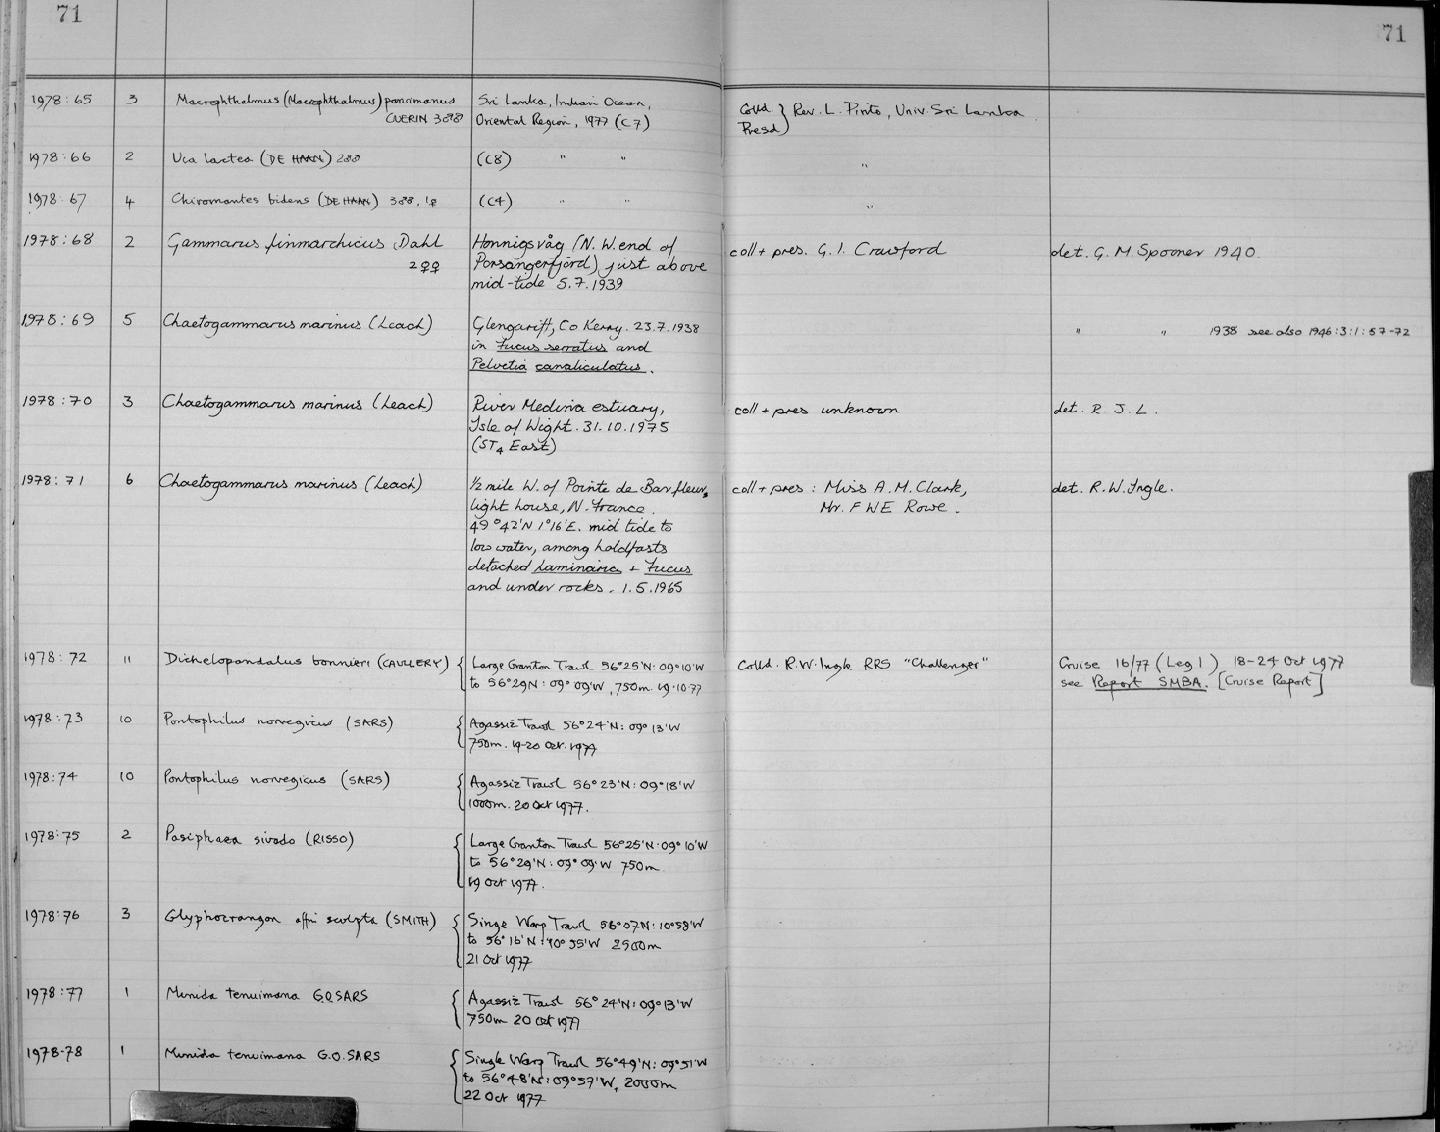 71
71
1978:65 3 Macrophthalmus (Macrophthalmus) parvimanus Sri Lanka, Indian Ocean, Colld } Rev. L. Pinto, Univ. Sri Lanka
GUERIN 3♂♂ Oriental Region, 1977 (C7) Presd
1978:66 2 Uca lactea (DE HAAN) 2♂♂ (C8) " " "
1978:67 4 Chiromantes bidens (DE HAAN) 3♂♂, 1♀ (C4) " " "
1978:68 2 Gammarus finmarchicus Dahl Honnigsvåg (N. W. end of coll + pres. G. I. Crawford det. G. M Spooner 1940.
2♀♀ Porsangerfjord) just above
mid-tide 5.7.1939
1978:69 5 Chaetogammarus marinus (Leach) Glengariff, Co Kerry. 23.7.1938 " " 1938 see also 1946:3:1:57-72
in Fucus serratus and
Pelvetia canaliculatus.
1978:70 3 Chaetogammarus marinus (Leach) River Medina estuary, coll + pres unknown det. R. J. L.
Isle of Wight. 31.10.1975
(ST4 East)
1978:71 6 Chaetogammarus marinus (Leach) ½ mile W. of Pointe de Barfleur, coll + pres: Miss A. M. Clark, det. R. W. Ingle.
light house, N. France. Mr. F W E Rowe.
49°42'N 1°16'E. mid tide to
low water, among holdfasts
detached Laminaria + Fucus
and under rocks. 1.5.1965
1978:72 11 Dichelopandalus bonnieri (CAULLERY) { Large Granton Trawl 56°25'N: 09°10'W Colld. R. W. Ingle RRS "Challenger" Cruise 16/77 (Leg 1) 18-24 Oct 1977
to 56°29N: 09°09'W, 750m. 19.10.77 see Report SMBA. [Cruise Report]
1978:73 10 Pontophilus norvegicus (SARS) { Agassiz Trawl 56°24'N: 09°13'W
750m. 19-20 Oct. 1977
1978:74 10 Pontophilus norvegicus (SARS) { Agassiz Trawl 56°23'N: 09°18'W
1000m. 20 Oct 1977.
1978:75 2 Pasiphaea sivado (RISSO) { Large Granton Trawl 56°25'N: 09°10'W
to 56°29'N: 09°09'W 750m.
19 Oct 1977.
1978:76 3 Glyphocrangon affin sculpta (SMITH) { Singe Warp Trawl 56°07N: 10°58'W
to 56°16'N: 10°55'W 2500m
21 Oct 1977
1978:77 1 Munida tenuimana G.O.SARS { Agassiz Trawl 56°24'N: 09°13'W
750m 20 Oct 1977
1978-78 1 Munida tenuimana G.O.SARS { Single Warp Trawl 56°49'N: 09°51'W
to 56°48'N: 09°57'W, 2000m
22 Oct 1977